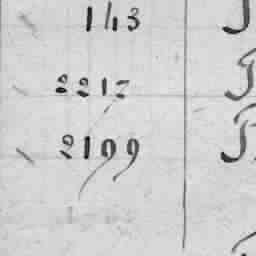 113
2212
2199